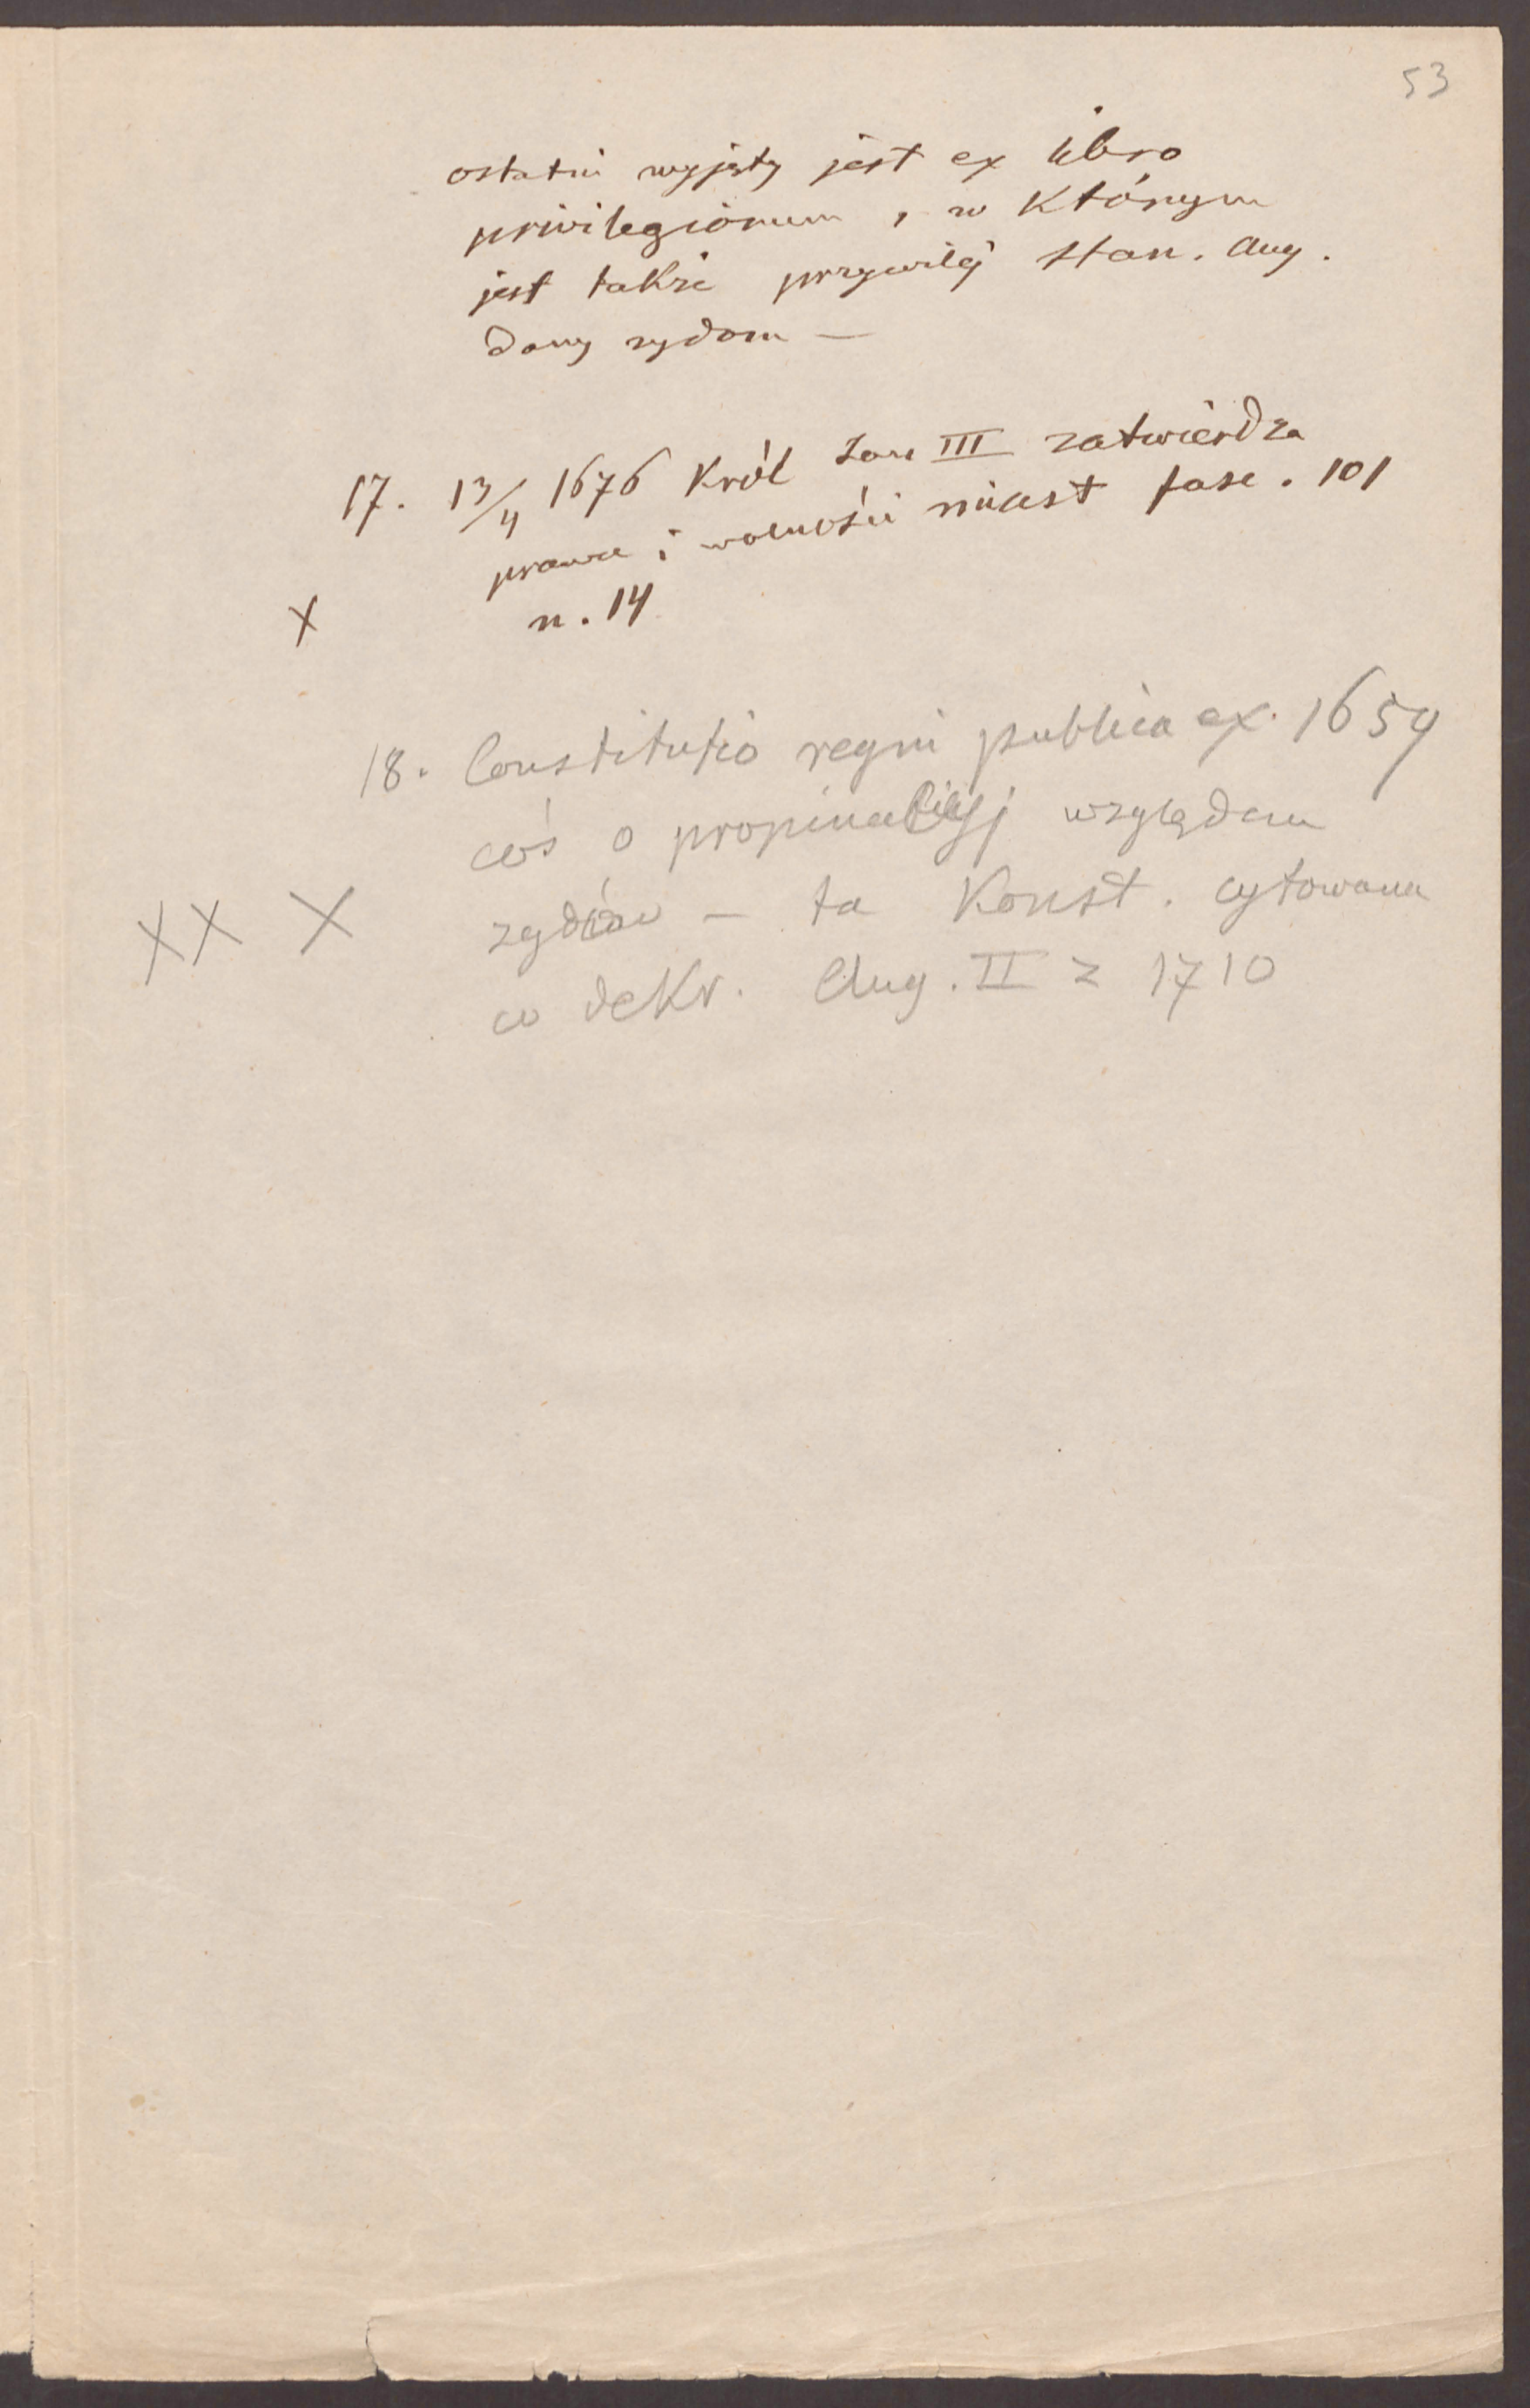 53
ostatni wyjęty jest ex libro
privilegiorum, w którym
jest także przywilej Stan. Aug.
dany żydom —
17. 13/4 1676 Król Jan III zatwierdza
prawa i wolności miast fasc. 101
X n. 14
18. Constitutio regni publica ex. 1659
coś o propinacyj względem
XX X żydów — ta Konst. cytowana
w dekr. Aug. II z 1710